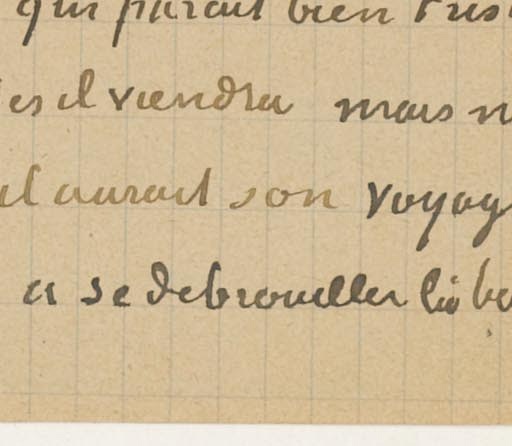 qui parait bien
es il viendra mais
il aurait son voyag
a se debrouiller